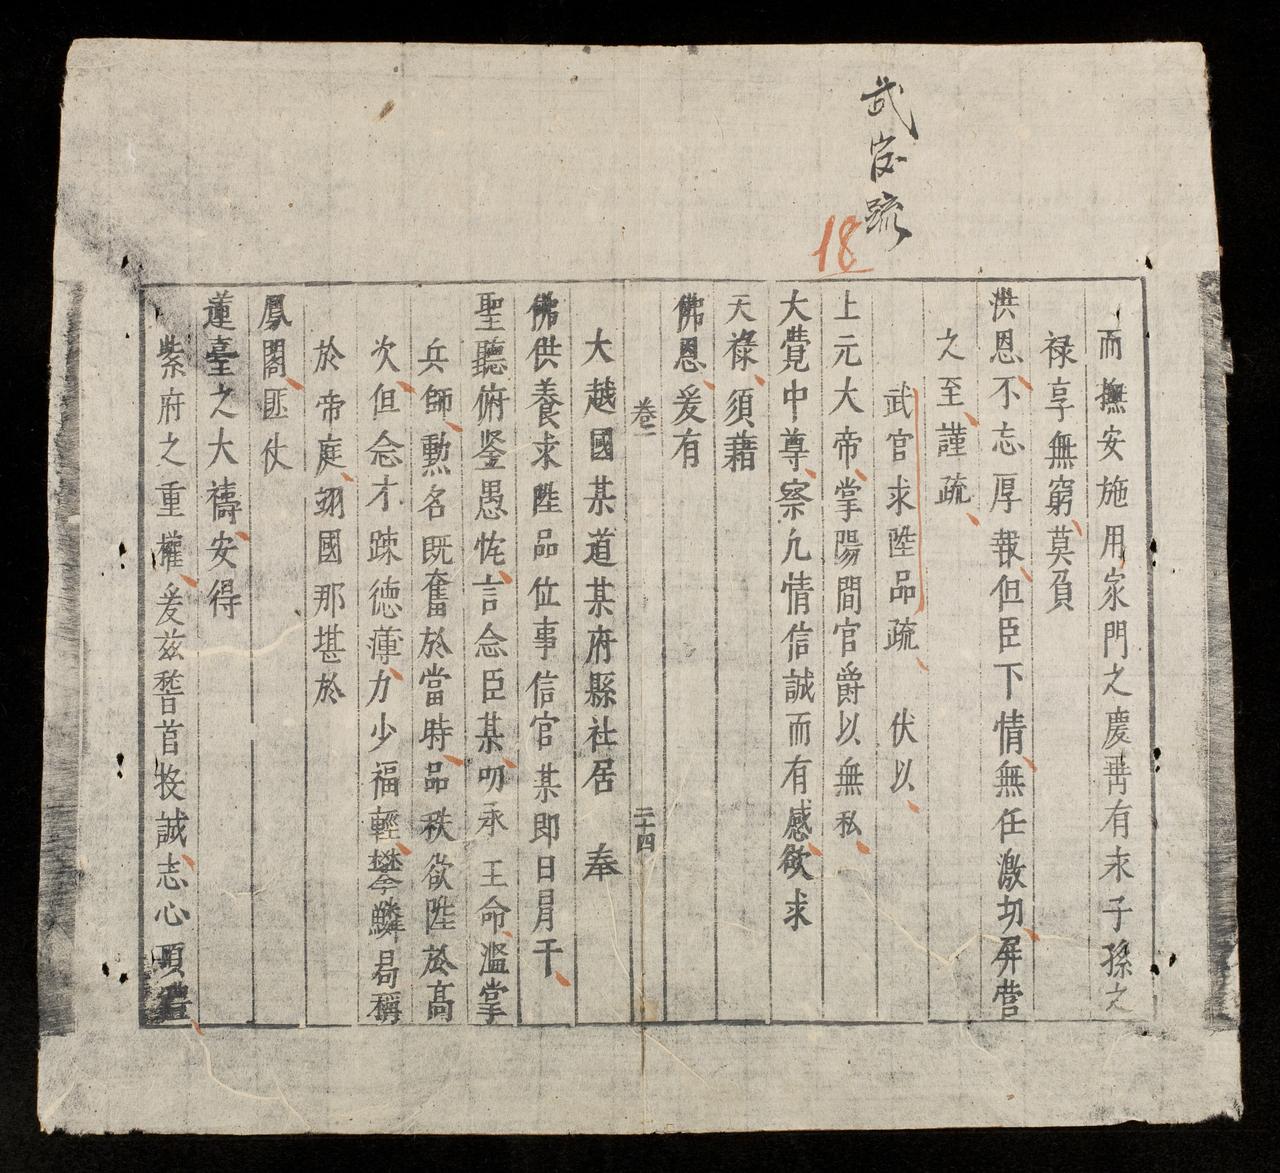 武官疏
18
而撫安施用家門之慶畀有永子孫之
禄享無窮莫負
洪恩不忘厚報但臣下情無任激切屏營
之至謹疏
武官求陞品疏 伏以
上元大帝掌陽間官爵以無私
大覺中尊察凡情信誠而有感欲求
天祿須藉
佛恩爰有
卷二 二十四
大越國某道某府縣社居 奉
佛供養求陞品位事信官某即日冐干
聖聽俯鉴愚忱言念臣某叨承王命濫掌
兵師勲名既奮於當時品秩欲陞於高
次但念才踈德薄力少福輕攀鱗曷稱
於帝庭翊國那堪於
鳳閣匪仗
蓮臺之大禱安得
紫府之重權爰兹嵆首投誠志心頂禮